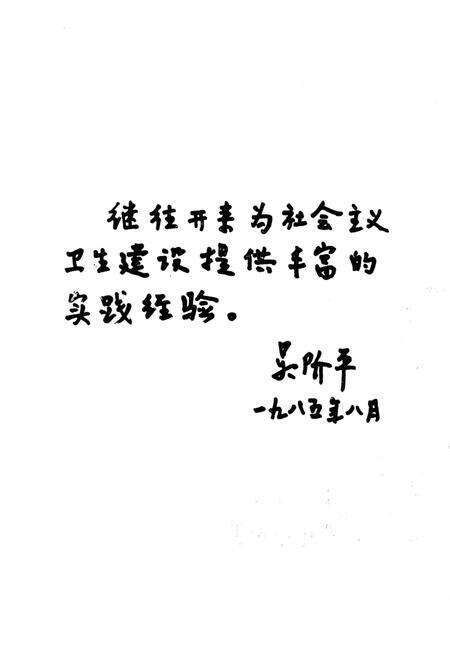 继往开来为社会主义
卫生建设提供丰富的
实践经验。
吴阶平
一九八五年八月